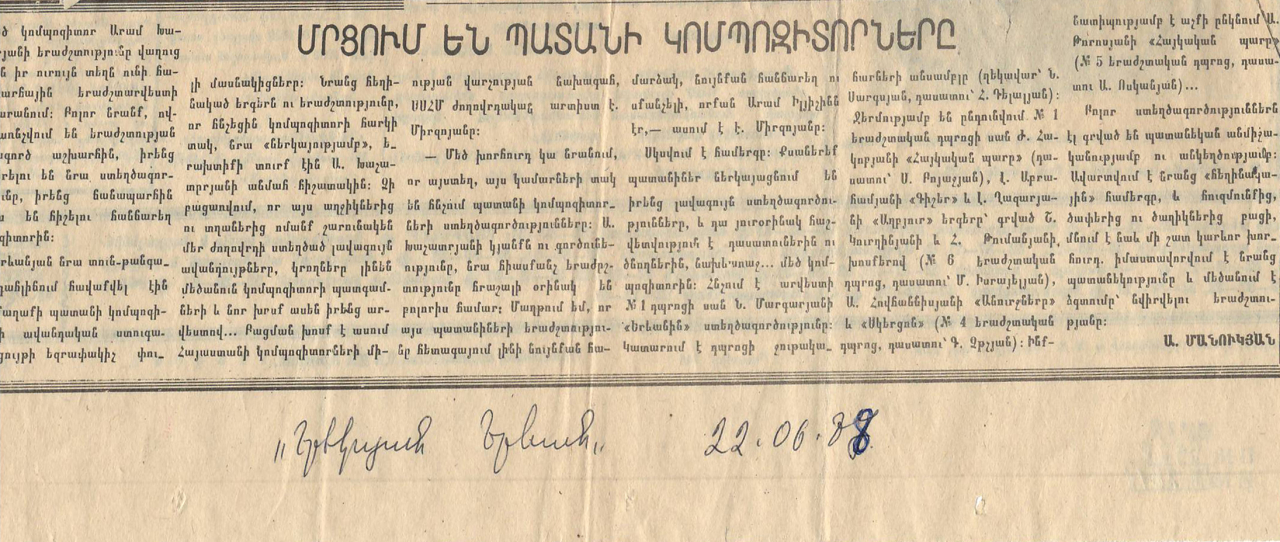 ՄՐՑՈՒՄ ԵՆ ՊԱՏԱՆԻ ԿՈՄՊՈԶԻՏՈՐՆԵՐԸ
ծ կոմպոզիտոր Արամ Խա-
յանի երաժշտությունը վաղուց
ն իր ուրույն տեղն ունի հա-
արհային երաժշտարվեստի
արանում։ Բոլոր նրանք, ով-
առնչվում են երաժշտության
ագործ աշխարհին, իրենց
րելու են նրա ստեղծագոր-
ւնը, իրենց ճանապարհին
ս են հիշելու հանճարեղ
զիտորին։
րևանյան նրա տուն-թանգա-
դահլիճում հավաքվել էին
աղաքի պատանի կոմպոզի-
ի ավանդական ստուգա-
ցույթի եզրափակիչ փու-
լի մասնակիցները։ Նրանց հեղի-
նակած երգերն ու երաժշտությունը,
որ հնչեցին կոմպոզիտորի հարկի
տակ, նրա «ներկայությամբ», ե-
րախտիքի տուրք էին Ա. Խաչա-
տրյանի անմահ հիշատակին։ Չի
բացառվում, որ այս աղջիկներից
ու տղաներից ոմանք շարունակեն
մեր ժողովրդի ստեղծած լավագույն
ավանդույթները, կրողները լինեն
մեծանուն կոմպոզիտորի պատգամ-
ների և նոր խոսք ասեն իրենց ար-
վեստով... Բացման խոսք է ասում
Հայաստանի կոմպոզիտորների մի-
ության վարչության նախագահ,
ՍՍՀՄ ժողովրդական արտիստ Է.
Միրզոյանը։
— Մեծ խորհուրդ կա նրանում,
որ այստեղ, այս կամարների տակ
են հնչում պատանի կոմպոզիտոր-
ների ստեղծագործությունները։ Ա.
Խաչատրյանի կյանքն ու գործունե-
ությունը, նրա հիասքանչ երաժըշ-
տությունը հրաշալի օրինակ են
բոլորիս համար։ Մաղթում եմ, որ
այս պատանիների երաժշտությու-
նը հետագայում լինի նույնքան հա-
մարձակ, նույնքան հանճարեղ ու
սքանչելի, որքան Արամ Իլյիչինն
էր,— ասում է Է. Միրզոյանը։
Սկսվում է համերգը։ Քսաներեք
պատանիներ ներկայացնում են
իրենց լավագույն ստեղծագործու-
թյունները, և դա յուրօրինակ հաշ-
վետվություն է դասատուներին ու
ծնողներին, նախևառաջ... մեծ կոմ-
պոզիտորին։ Հնչում է արվեստի
№ 1 դպրոցի սան Ն. Մարգարյանի
«Երևանին» ստեղծագործությունը։
Կատարում է դպրոցի ջութակա-
հարների անսամբլը (ղեկավար՝ Ն.
Սարգսյան, դասատու՝ Հ. Դելալյան)։
Ջերմությամբ են ընդունվում № 1
երաժշտական դպրոցի սան Ժ. Հա-
կոբյանի «Հայկական պար» (դա-
սատու՝ Ս. Բոյաջյան), Լ. Աբրա-
համյանի «Գիշեր» և Լ. Ղազարյա-
նի «Աղբյուր» երգերը՝ գրված Շ.
Կուրղինյանի և Հ. Թումանյանի
խոսքերով (№ 6 երաժշտական
դպրոց, դասատու՝ Մ. Իսրայելյան),
Ա. Հովհաննիսյանի «Անուրջները»
և «Սկերցոն» (№ 4 երաժշտական
դպրոց, դասատու՝ Գ. Չթչյան)։ Ինք-
նատիպությամբ է աչքի ընկնում Ա.
Թորոսյանի «Հայկական պարը»
(№ 5 երաժշտական դպրոց, դասա-
տու Ա. Ոսկանյան)...
Բոլոր ստեղծագործություններն
էլ գրված են պատանեկան անմիջա-
կանությամբ ու անկեղծությամբ։
Ավարտվում է նրանց «հեղինակա-
յին» համերգը, և հուզմունքից,
ծափերից ու ծաղիկներից բացի,
մնում է նաև մի շատ կարևոր խոր-
հուրդ. իմաստավորվում է նրանց
պատանեկությունը և մեծանում է
ձգտումը՝ նվիրվելու երաժշտու-
թյանը։
Ա. ՄԱՆՈՒԿՅԱՆ
„Երեկոյան Երևան„ 22.06.88